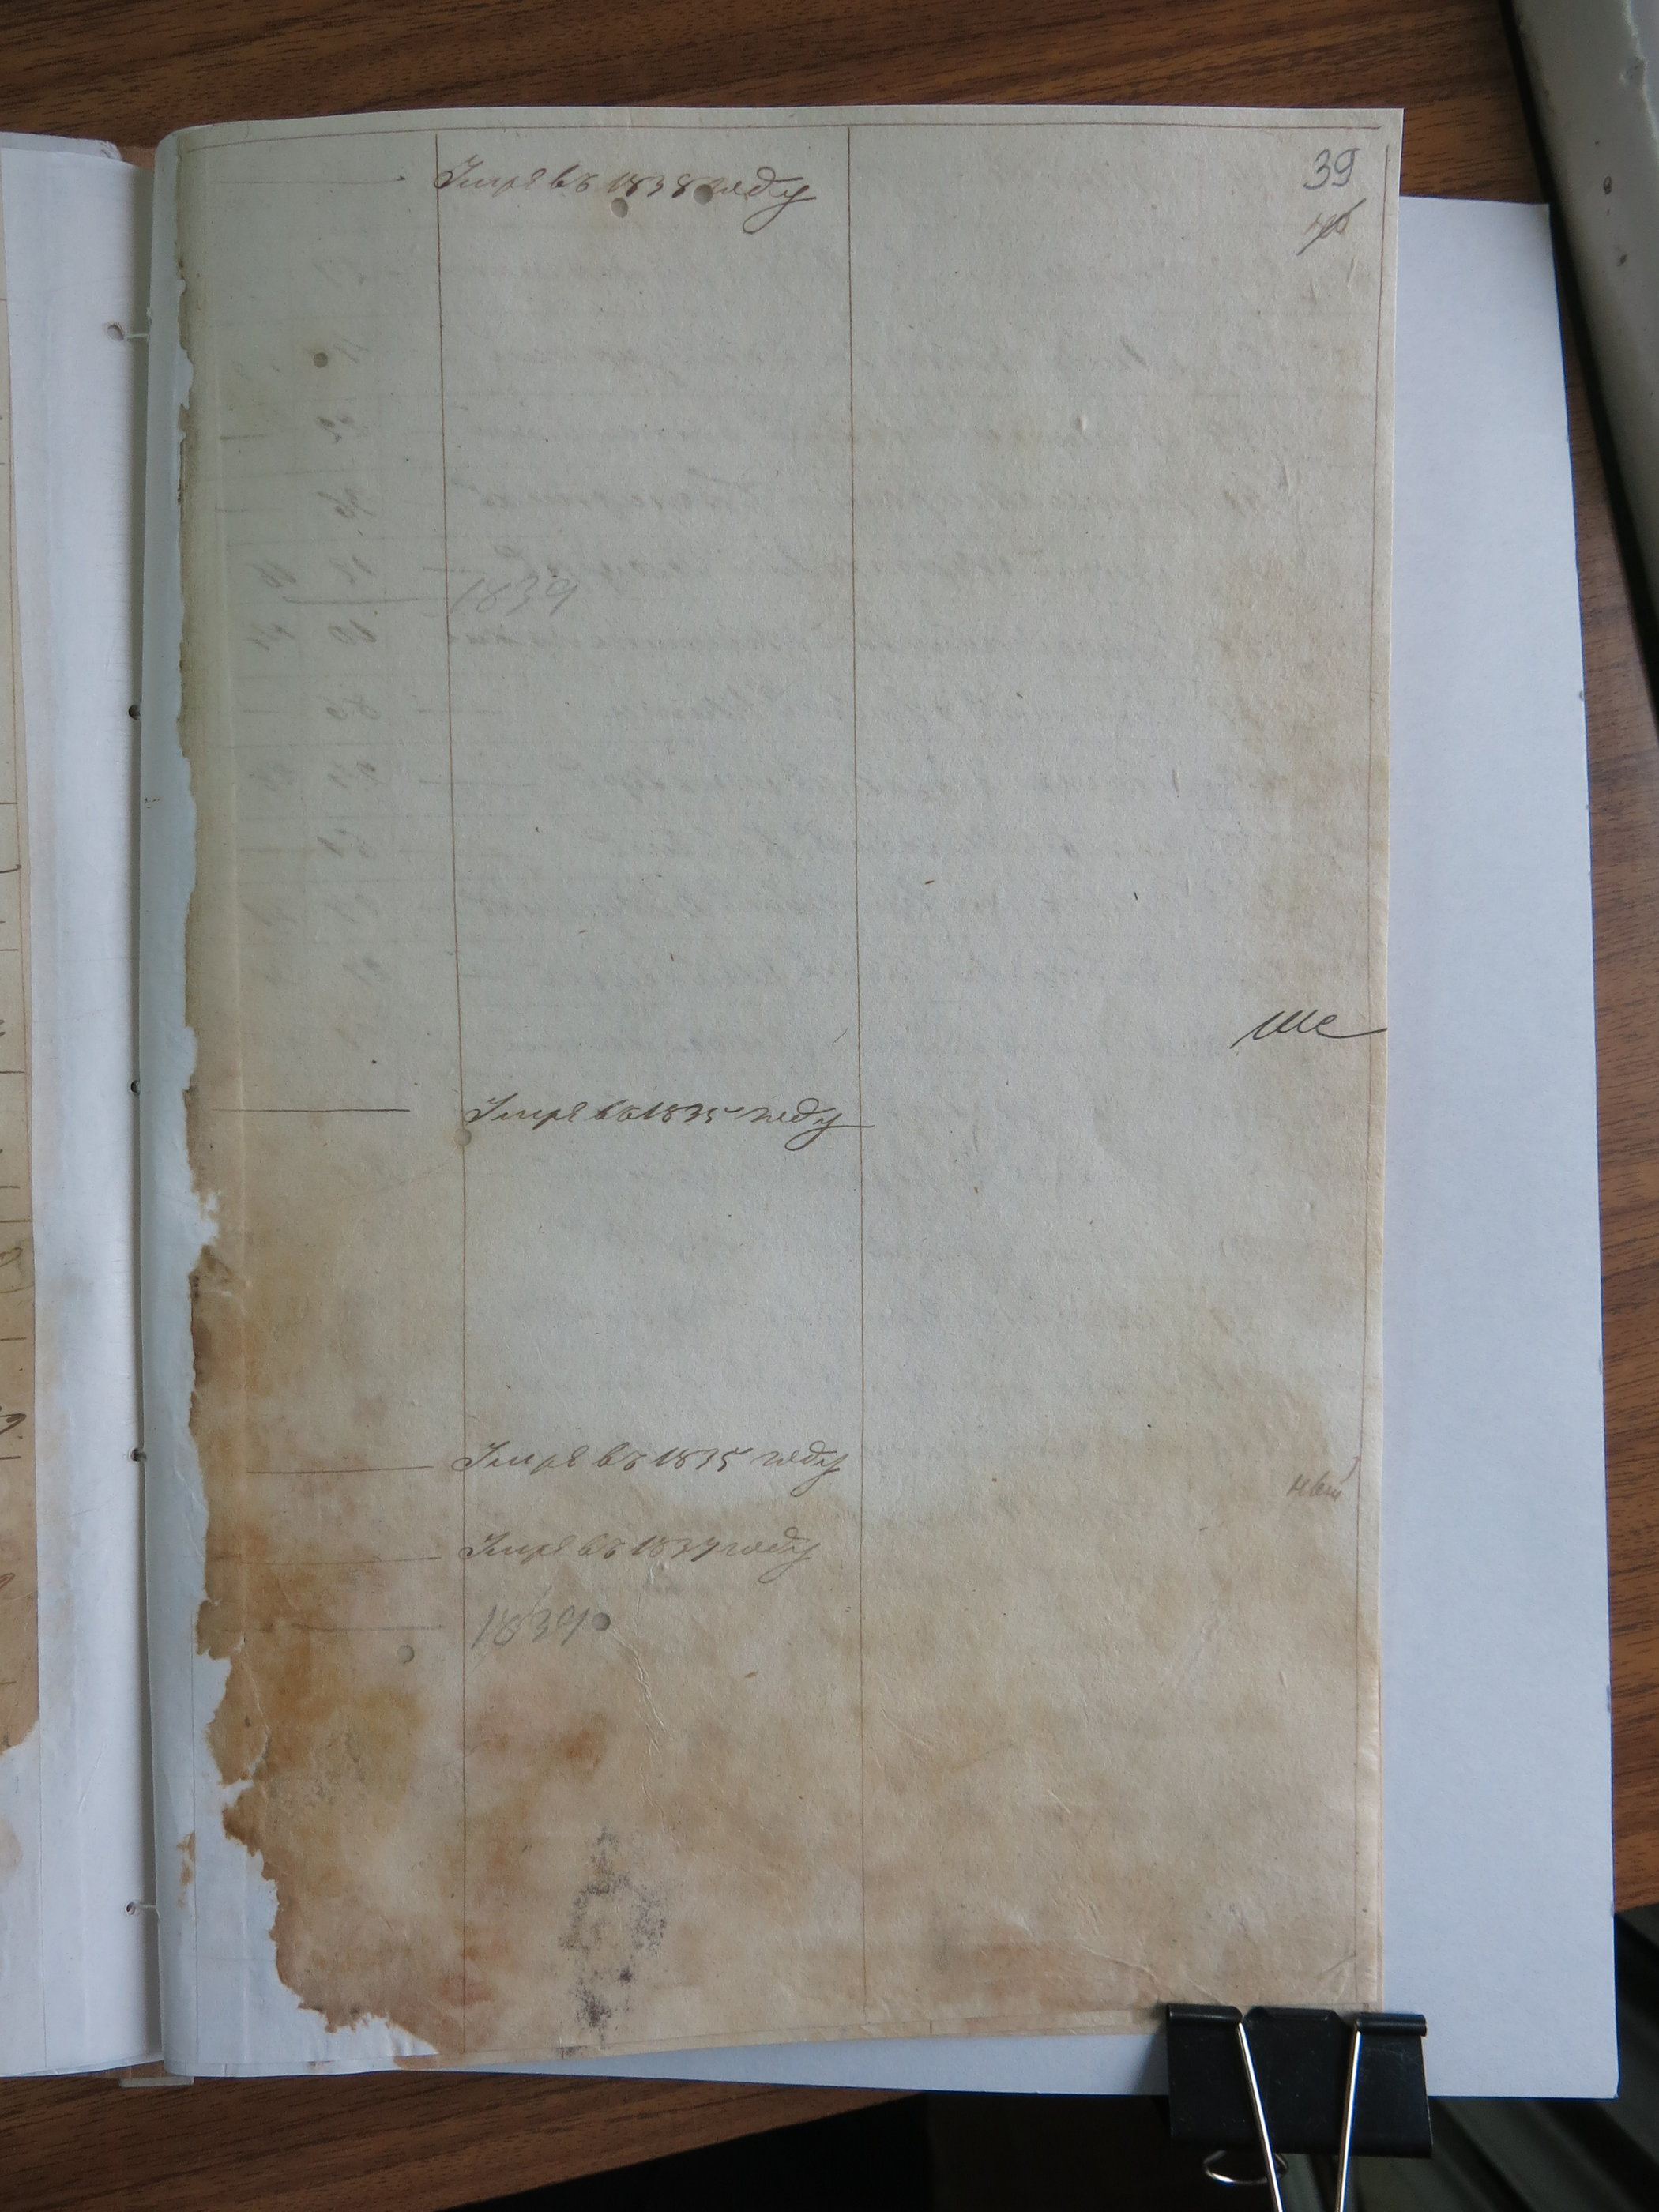 39
Умре въ 1838 году
1839
ше
Умре въ 1835 году
Умре въ 1835 году
Умре въ 1837 году
1839